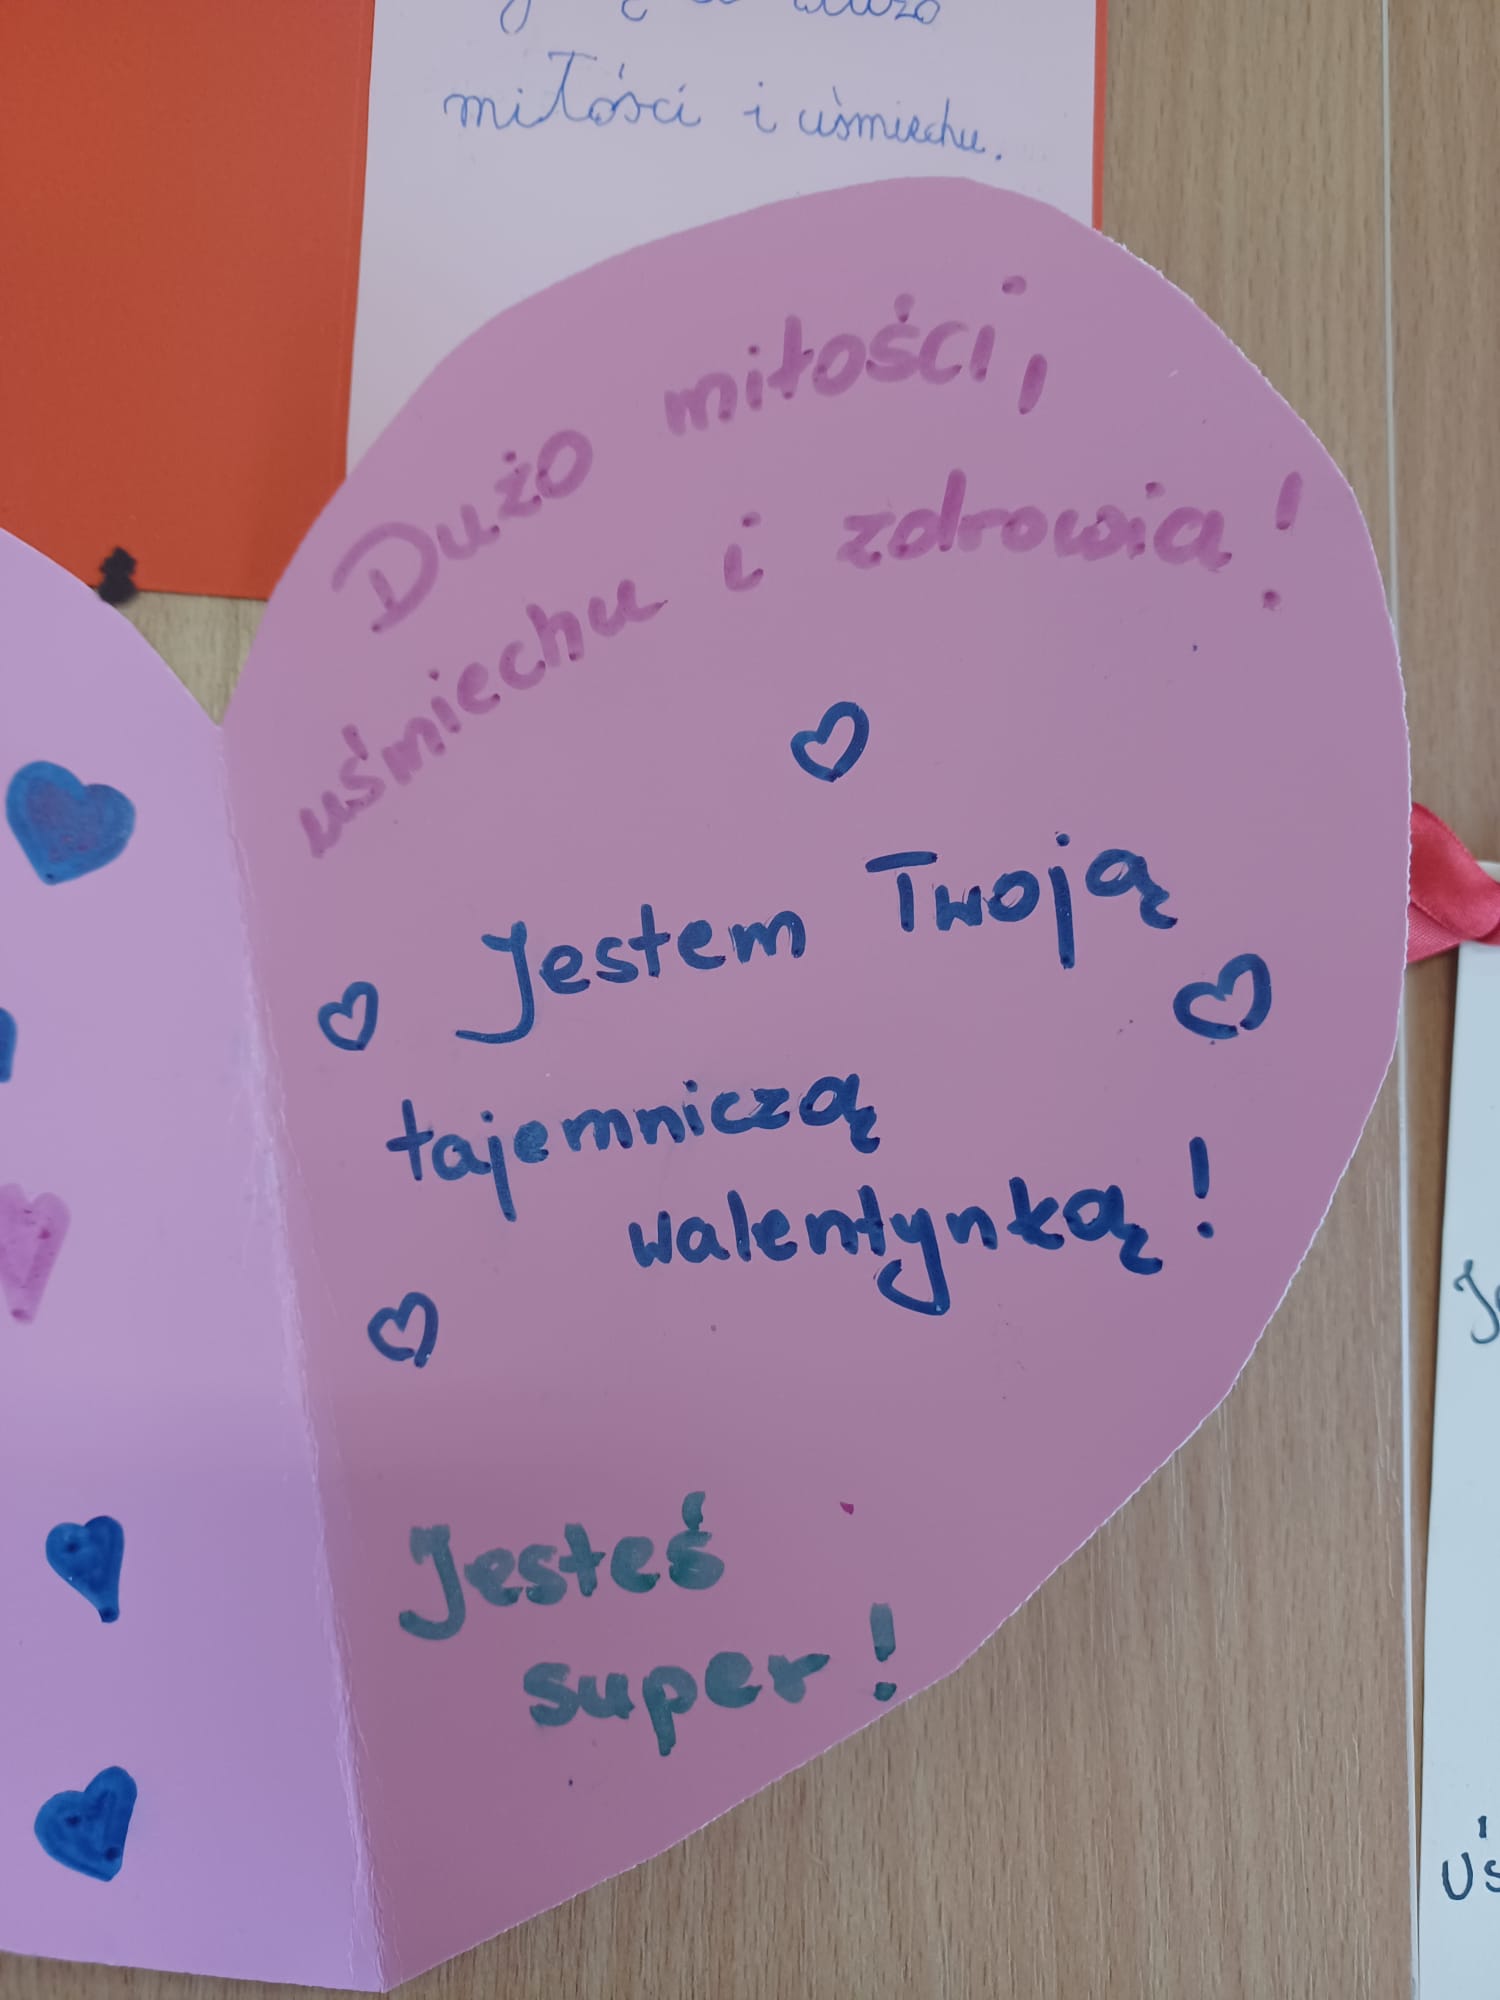 dużo
miłości i uśmiechu.
Dużo miłości,
uśmiechu i zdrowia!
Jestem Twoją
tajemniczą
walentynką!
Jesteś
super!